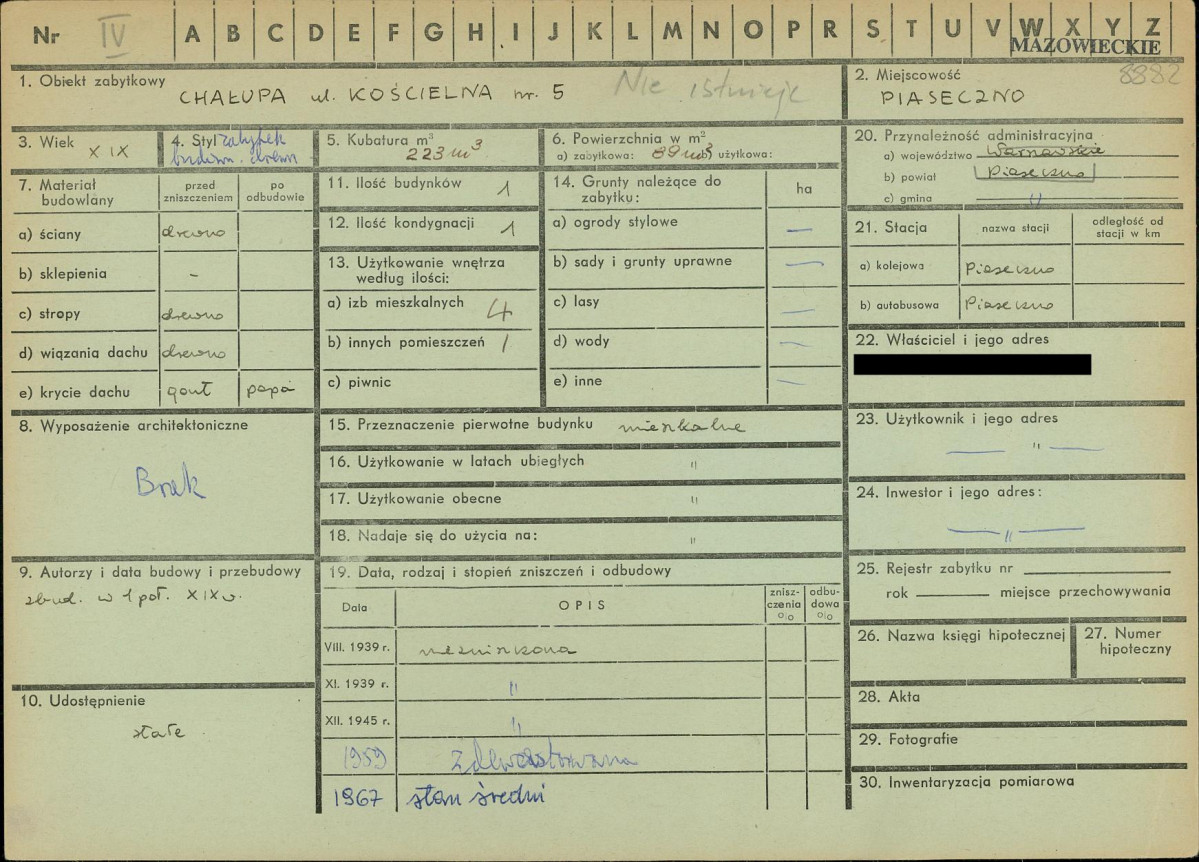 Nr IV A B C D E F G H I J K L M N O P R S T U V W X Y Z
MAZOWIECKIE
8882
1. Obiekt zabytkowy
CHAŁUPA ul. KOŚCIELNA nr. 5
Nie istnieje
2. Miejscowość
PIASECZNO
3. Wiek
XIX
4. Styl zabytek
budown. drewn
5. Kubatura m³
223 m³
6. Powierzchnia w m²
a) zabytkowa: 89 m² b) użytkowa:
20. Przynależność administracyjna
a) województwo Warszawskie
b) powiat Piaseczno
c) gmina "
7. Materiał
budowlany
przed
zniszczeniem
po
odbudowie
a) ściany drewno
b) sklepienia –
c) stropy drewno
d) wiązania dachu drewno
e) krycie dachu gont papa
11. Ilość budynków 1
12. Ilość kondygnacji 1
13. Użytkowanie wnętrza
według ilości:
a) izb mieszkalnych 4
b) innych pomieszczeń 1
c) piwnic
14. Grunty należące do
zabytku:
ha
a) ogrody stylowe —
b) sady i grunty uprawne —
c) lasy —
d) wody —
e) inne —
21. Stacja
nazwa stacji
odległość od
stacji w km
a) kolejowa Piaseczno
b) autobusowa Piaseczno
22. Właściciel i jego adres
23. Użytkownik i jego adres
— " —
24. Inwestor i jego adres:
— " —
8. Wyposażenie architektoniczne
Brak
15. Przeznaczenie pierwotne budynku mieszkalne
16. Użytkowanie w latach ubiegłych "
17. Użytkowanie obecne "
18. Nadaje się do użycia na: "
9. Autorzy i data budowy i przebudowy
zbud. w 1 poł. XIX w.
10. Udostępnienie
stałe
19. Data, rodzaj i stopień zniszczeń i odbudowy
Data
OPIS
znisz-
czenia
o/o
odbu-
dowa
o/o
VIII. 1939 r. niezniszczona
XI. 1939 r. "
XII. 1945 r. "
1959 zdewastowana
1967 stan średni
25. Rejestr zabytku nr
rok miejsce przechowywania
26. Nazwa księgi hipotecznej
27. Numer
hipoteczny
28. Akta
29. Fotografie
30. Inwentaryzacja pomiarowa